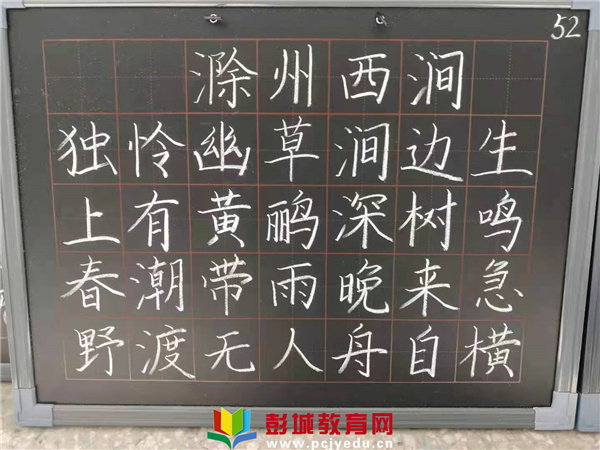 52
滁州西涧
独怜幽草涧边生
上有黄鹂深树鸣
春潮带雨晚来急
野渡无人舟自横
彭城教育网
www.pcjyedu.cn